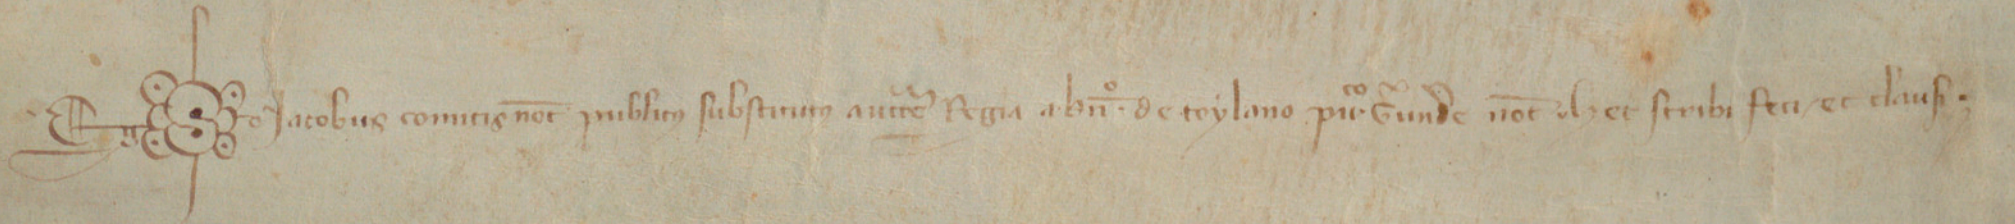 Ego Jacobus comitis not publicus substitutus aucte Regia a bn̄o de toylano pūco Gerunde not hec scribi feci et clausi.